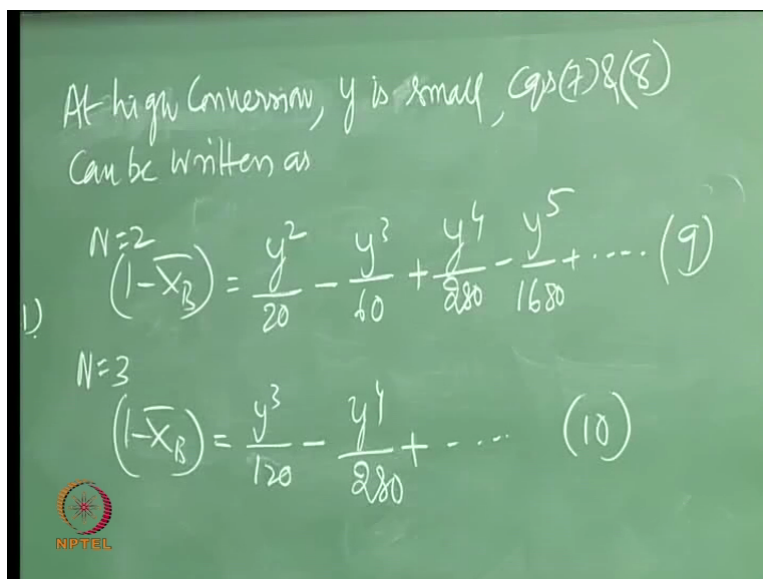 At high Conversion, y is small, eqs (7) & (8)
Can be written as
N=2
1) (1-X̄_B) = y²/20 - y³/60 + y⁴/280 - y⁵/1680 + ···· (9)
N=3
(1-X̄_B) = y³/120 - y⁴/280 + ····· (10)
NPTEL